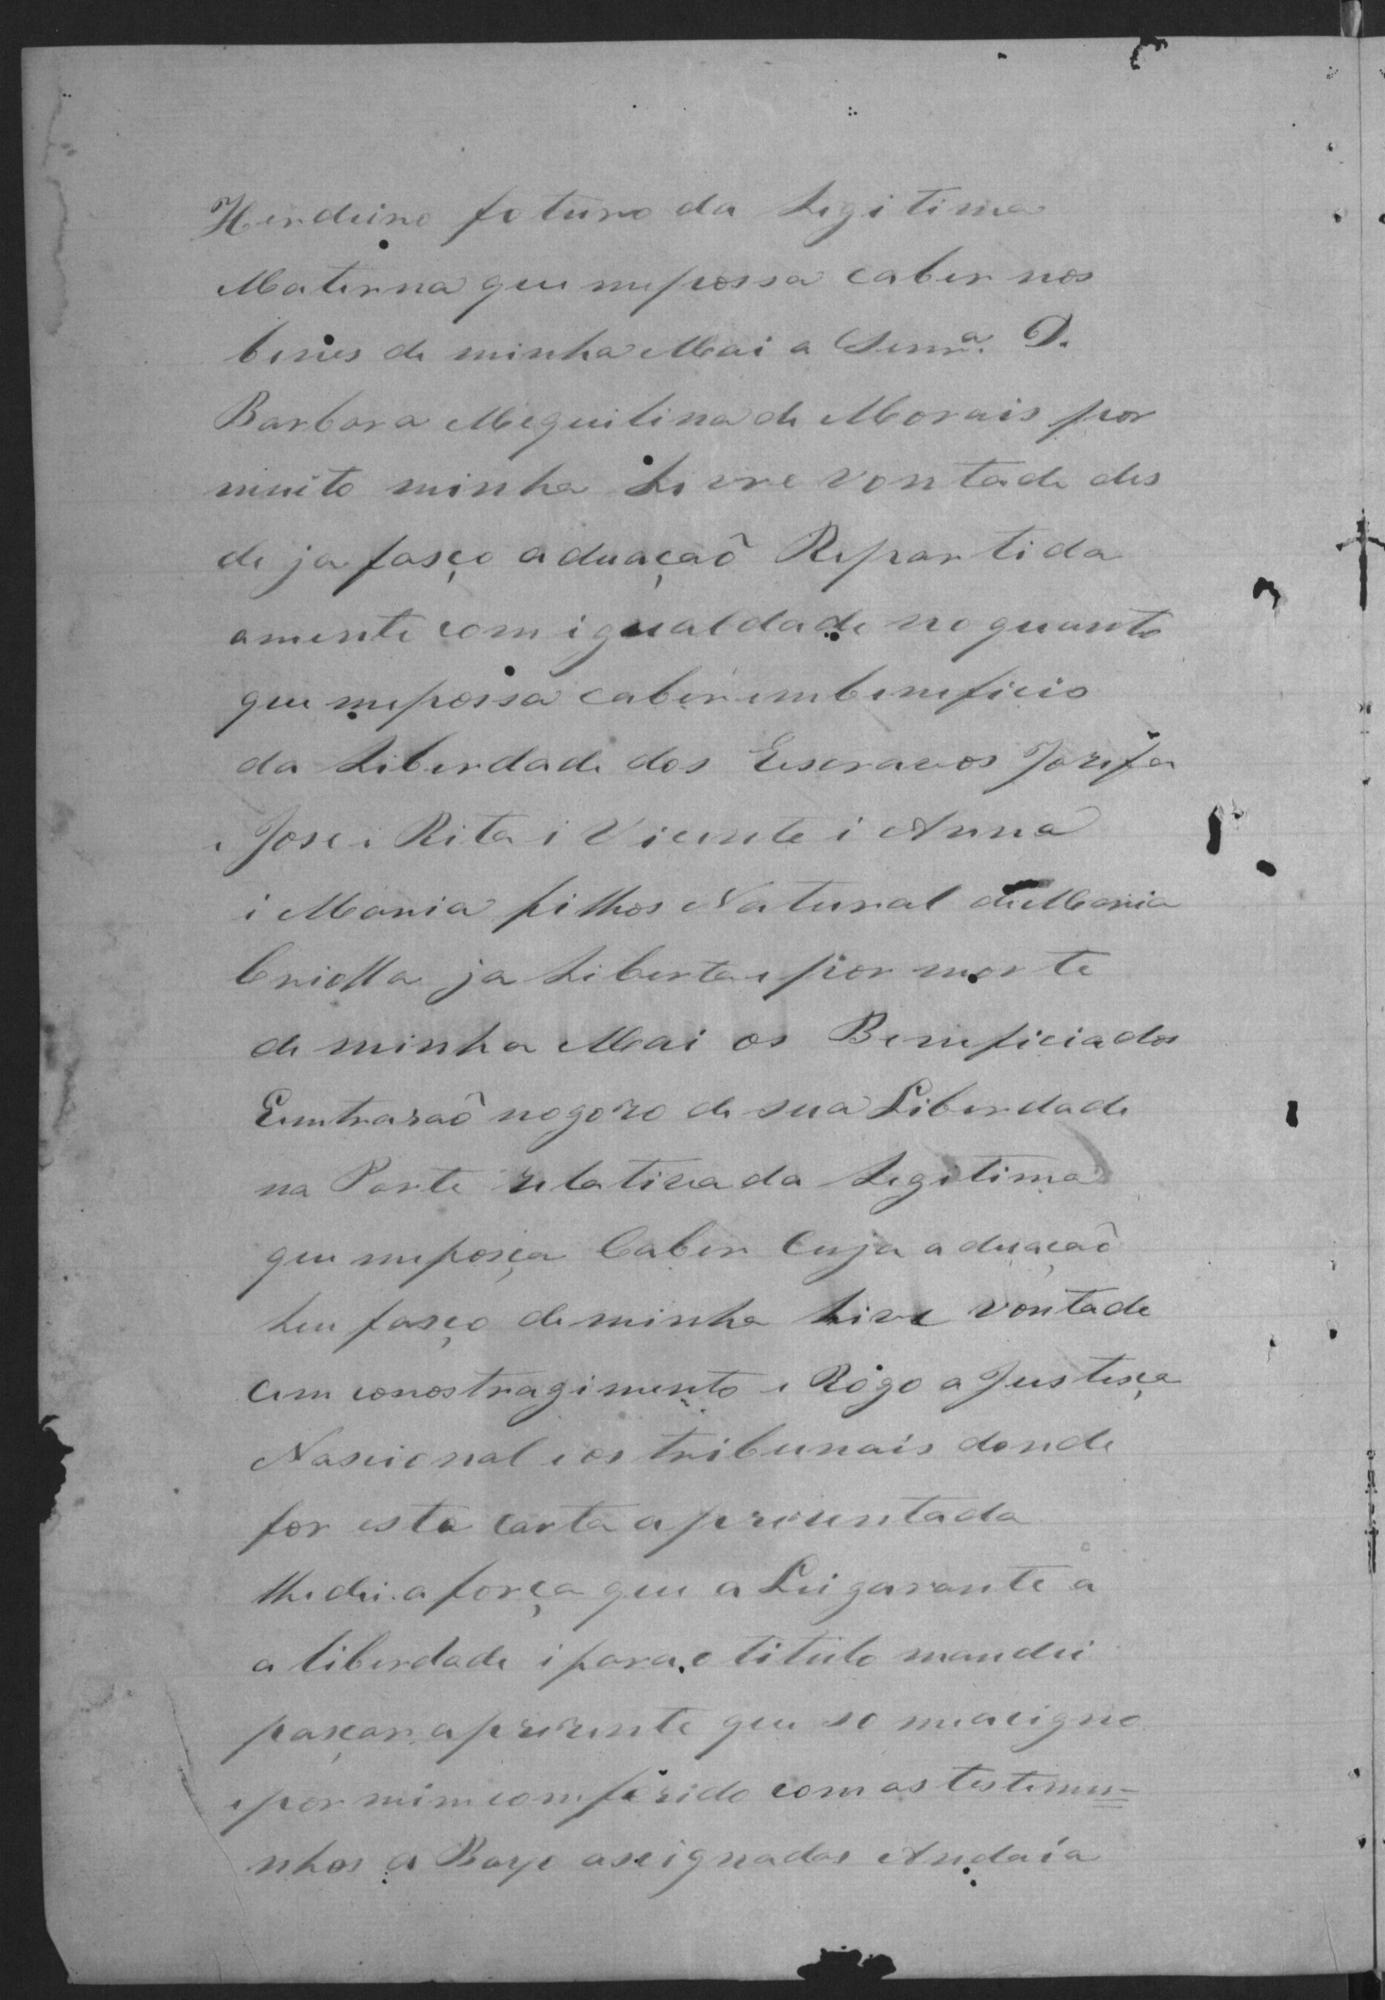 Herdeiro foturo da Legitima
Materna que me possa caber nos
benes de minha Mai a Senrª. D.
Barbara Mequilina de Morais por
muito minha Livre vontade des
de ja fasço aduaçaõ Repartida
amente com igualdade no quanto
que me possa caber em beneficio
da Liberdade dos Escravos Jozefa
i Jose i Rita i Vicente i Anna
i Maria filhos Natural de Maria
Criolla ja Liberta e por morte
de minha Mai os Beneficiados
Emtraraõ no gozo de sua Liberdade
na Parte relativa da Legitima
que me posça Caber Cuja aduaçaõ
heu fasço de minha Livre vontade
cem conostragimento e Rogo a Justisça
Nascional e os tribunais donde
for esta carta aprezentada
lhe dei a força que a Lei garante a
a liberdade i para o titulo mandei
pasçar aprezente que so me acigno
e por mim comferido com as testemu=
nhas a Baxo ascignadas Andaía